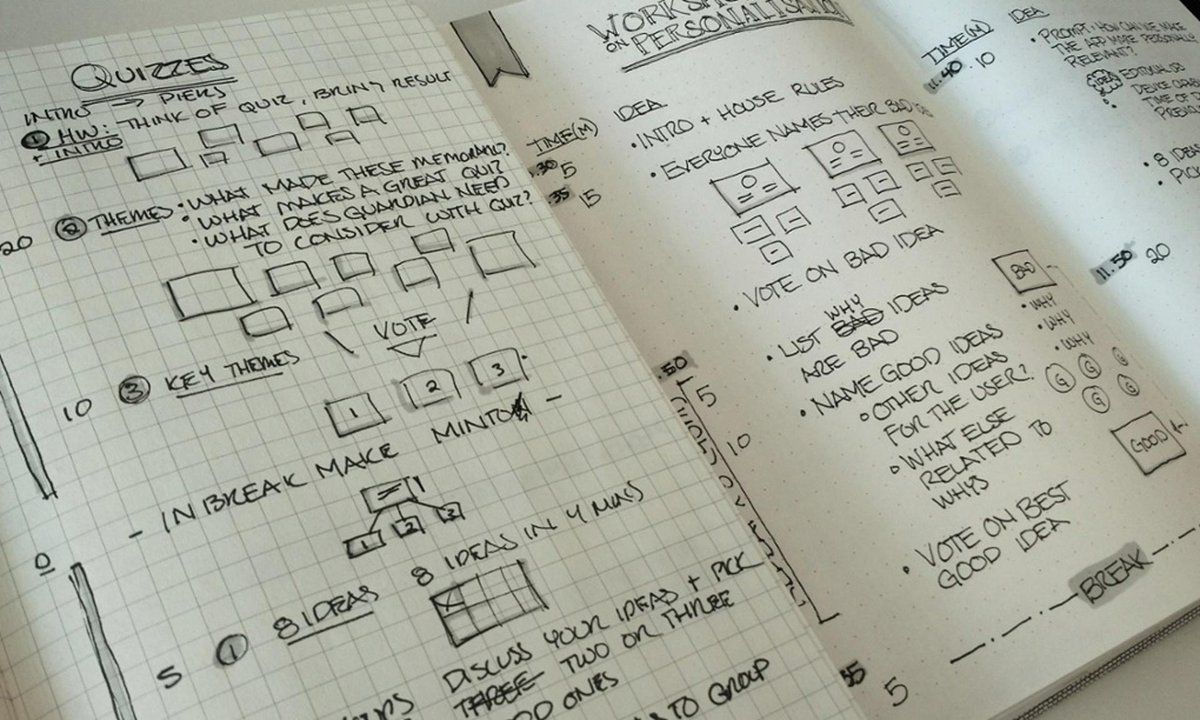 QUIZZES
INTRO → PIERS
① HW: THINK OF QUIZ, BRING RESULT
+ INTRO
20 ② THEMES • WHAT MADE THESE MEMORABLE?
• WHAT MAKES A GREAT QUIZ?
• WHAT DOES GUARDIAN NEED
TO CONSIDER WITH QUIZ?
VOTE
10 ③ KEY THEMES
1 2 3
- IN BREAK MAKE MINTO
1 2 3
0
5 ① 8 IDEAS 8 IDEAS IN 4 MINS
DISCUSS YOUR IDEAS + PICK
THREE TWO OR THREE
ONES
TO GROUP
ON PERSONALISATION
TIME(M) IDEA
.30 5 • INTRO + HOUSE RULES
.35 15 • EVERYONE NAMES THEIR BAD
• VOTE ON BAD IDEA
.50 5 • LIST BAD WHY IDEAS
ARE BAD
10 • NAME GOOD IDEAS
OTHER IDEAS
FOR THE USER?
WHAT ELSE
RELATED TO
WHYS
• VOTE ON BEST
GOOD IDEA
BAD
• WHY
• WHY
• WHY
G G G G G
GOOD
BREAK
55 5
TIME(M) IDEA
11.40 10 • PROMPT: HOW CAN WE MAKE
THE APP MORE PERSONALLY
RELEVANT?
EDITORIAL
DEVICE
TIME OF
• 8 IDEAS
11.50 20